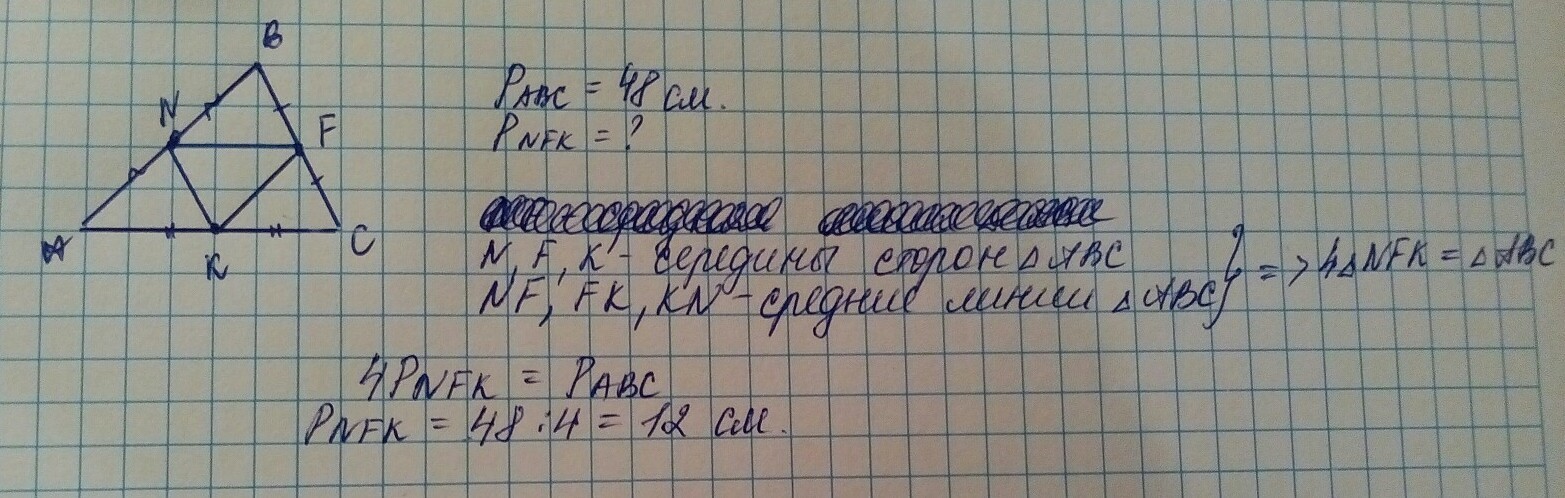 B
N
F
A
K
C
PABC = 48 см.
PNFK = ?
N, F, K - середины сторон △ ABC
NF, FK, KN - средние линии △ ABC} => 4△NFK = △ABC
4PNFK = PABC
PNFK = 48 : 4 = 12 см.